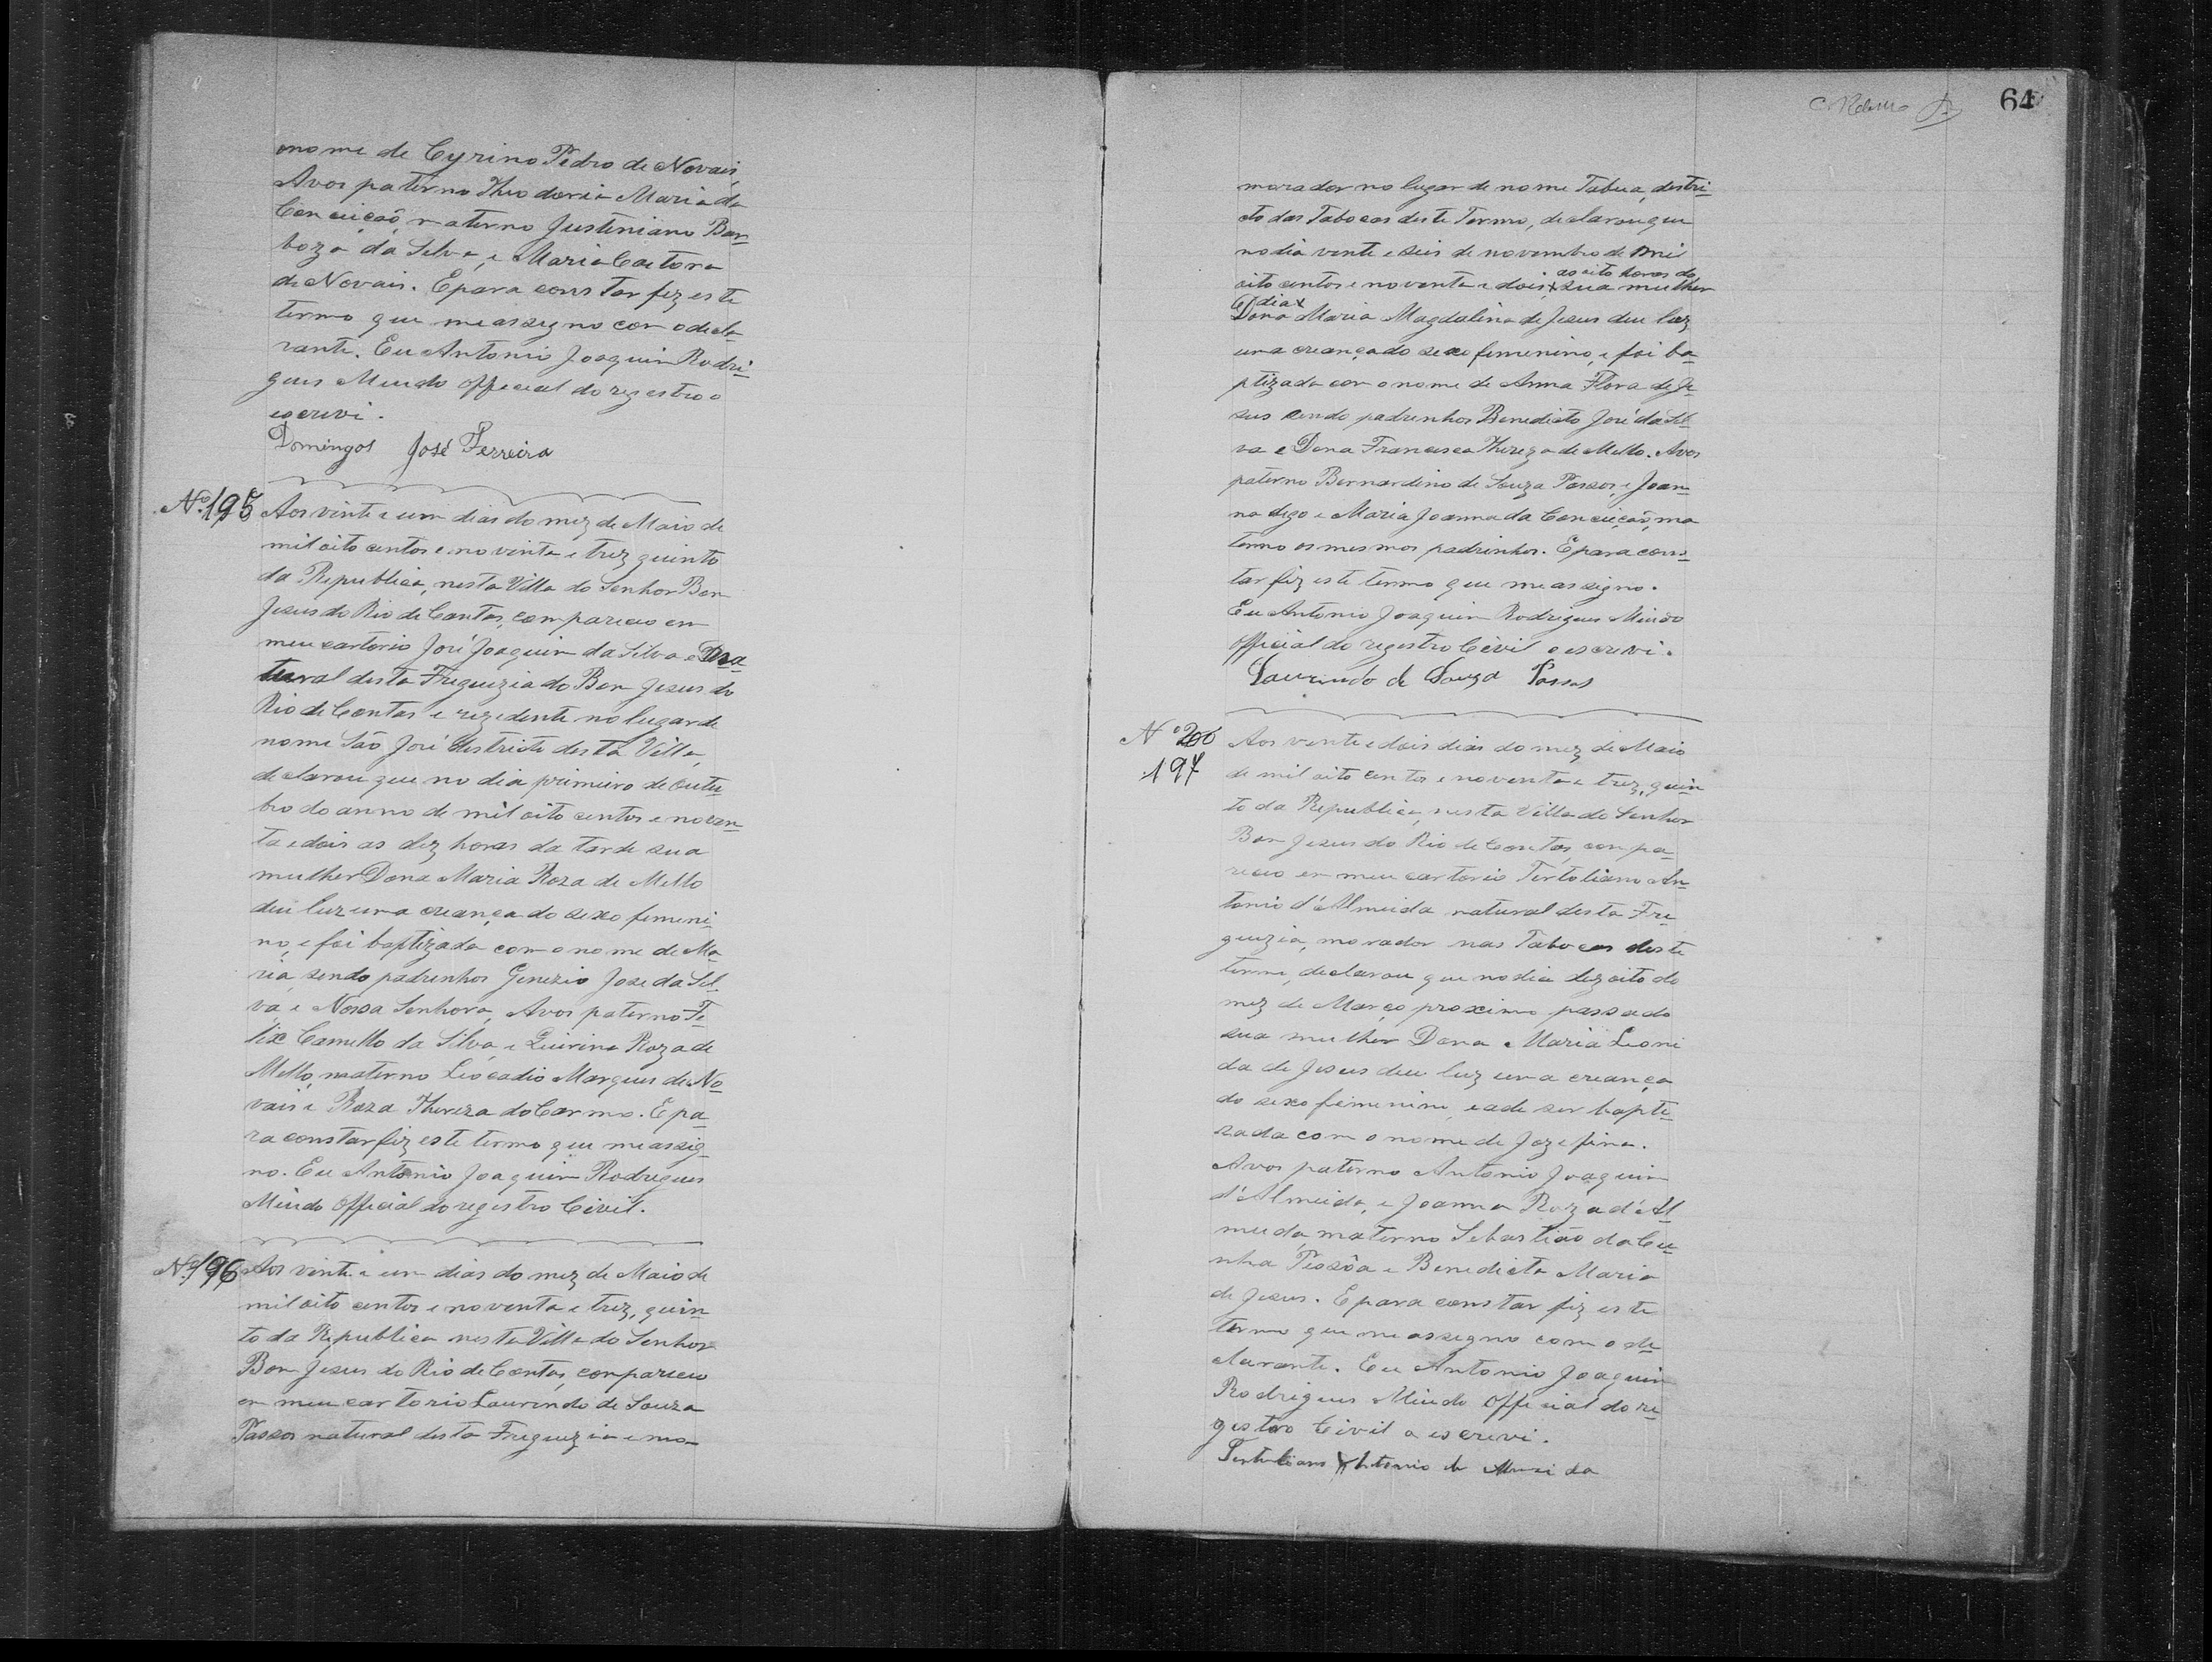 onome de Cyrino Pedro de Novais,
Avos paterno Theodoria Maria da
Conceição, materno Justeniano Bar-
boza da Silva, e Maria Caetana
de Novais. Epara constar fiz este
termo que me assegno com odecla-
rante. Eu Antonio Joaquim Rodri-
gues Miudo official do registro o
escrevi.
Domingos José Ferreira
Nº 195 Aos vinte e um dias do mez de Maio de
mil oito centos e noventa e trez quinto
da Republica, nesta Villa do Senhor Bom
Jesus do Rio de Contas, compareceo em
meu cartorio José Joaquim da Silva e na-
tural desta Freguizia do Bom Jesus do
Rio de Contas e rezedente no lugar de
nome São José destricto desta Villa,
declarou que no dia primeiro de Outu-
bro do anno de mil oito centos e noven-
ta e dois as dez horas da tarde sua
mulher Dona Maria Roza de Mello
deu luz uma creança do sexo femeni-
no, e foi baptizada com o nome de Ma-
ria, sendo padrenhos Genezio Jose da Sil-
va, e Nossa Senhora, Avos paterno Fe-
lix Camello da Silva e Quirina Roza de
Mello, materno Leocadio Marques de No-
vais e Roza Thereza do Carmo. Epa-
ra constar fiz este termo que me assig-
no. Eu Antonio Joaquim Rodrigues
Miudo official do registro Civil.
Nº 196 Aos vinte e um dias do mez de Maio de
mil oito centos e noventa e trez, quin-
to da Republica nesta Villa do Senhor
Bom Jesus do Rio de Contas, compareceo
em meu cartorio Laurindo de Souza
Passos natural desta Freguezia e mo-
64
morador no lugar de nome Tabua, destri-
cto das Tabocas deste Termo, declarou que
no dia vente e seis de novembro de mil
as oito horas do
oito centos e noventa e dois, x sua mulher
dia x
Dona Maria Magdalina de Jesus deu luz
uma creança do sexo femenino, e foi ba-
ptizada com o nome de Anna Flora de Je-
sus sendo padrenhos Benedicto José da Sil-
va e Dona Francisca Thereza de Mello. Avos
paterno Bernardino de Souza Passos, e Joan-
na digo e Maria Joanna da Conceição, ma
terno os mesmos padrinhos. Epara cons-
tar fiz este termo que me assigno.
Eu Antonio Joaquim Rodrigues Miudo
official do registro Civil o escrevi.
Laurindo de Souza Passos
Nº 200 Aos vente e dois dias do mez de Maio
197 de mil oito centos e noventa e trez, quin-
to da Republica, nesta Villa do Senhor
Bom Jesus do Rio de Contas, compa-
receo em meu cartorio Tertoliano An-
tonio d'Almeida natural desta Fre-
guizia, morador nas Tabocas deste
termo, declarou que no dia dezoito do
mez de Março proximo passado
sua mulher Dona Maria Leoni
da de Jesus deu luz uma creança
do sexo femenino, eade ser bapte-
zada com o nome de Jozefina.
Avos paterno Antonio Joaquim
d'Almeida, e Joanna Roza d'Al-
meida, materno Sebastião da Cu-
nha Pessôa e Benedicta Maria
de Jesus. Epara constar fiz este
termo que me assegno com o de-
clarante. Eu Antonio Joaquim
Rodrigues Miudo official do re-
gistro Civil o escrevi.
Tertuliano Antonio de Almeida